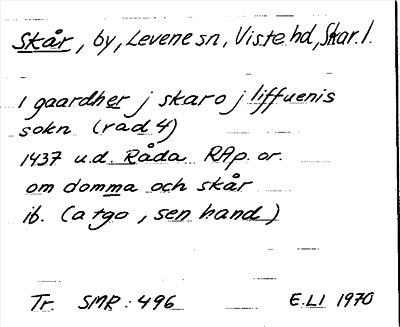 Skår, by, Levene sn, Viste hd, Skar. l.
1 gaardher j skaro j liffuenis
sokn (rad 4)
1437 u.d. Råda RAp. or.
om domma och skår
ib. (a tgo, sen hand)
Tr. SMR: 496 E.LI 1970